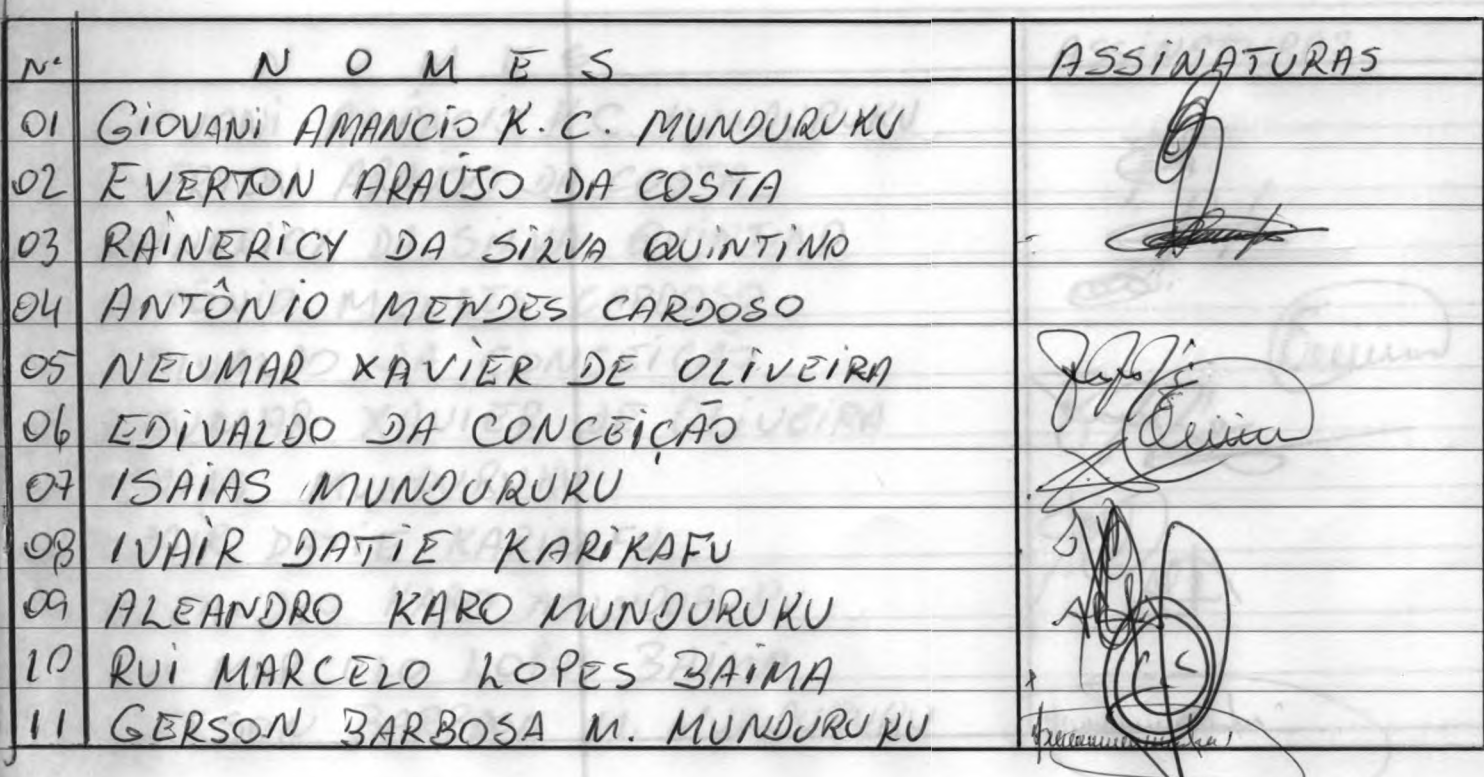 Nº NOMES ASSINATURAS
01 GIOVANI AMANCIO K. C. MUNDURUKU
02 EVERTON ARAÚJO DA COSTA
03 RAINERICY DA SILVA QUINTINO
04 ANTÔNIO MENDES CARDOSO
05 NEUMAR XAVIER DE OLIVEIRA
06 EDIVALDO DA CONCEIÇÃO
07 ISAIAS MUNDURUKU
08 IVAIR DATIE KARIKAFU
09 ALEANDRO KARO MUNDURUKU
10 RUI MARCELO LOPES BAIMA
11 GERSON BARBOSA M. MUNDURUKU